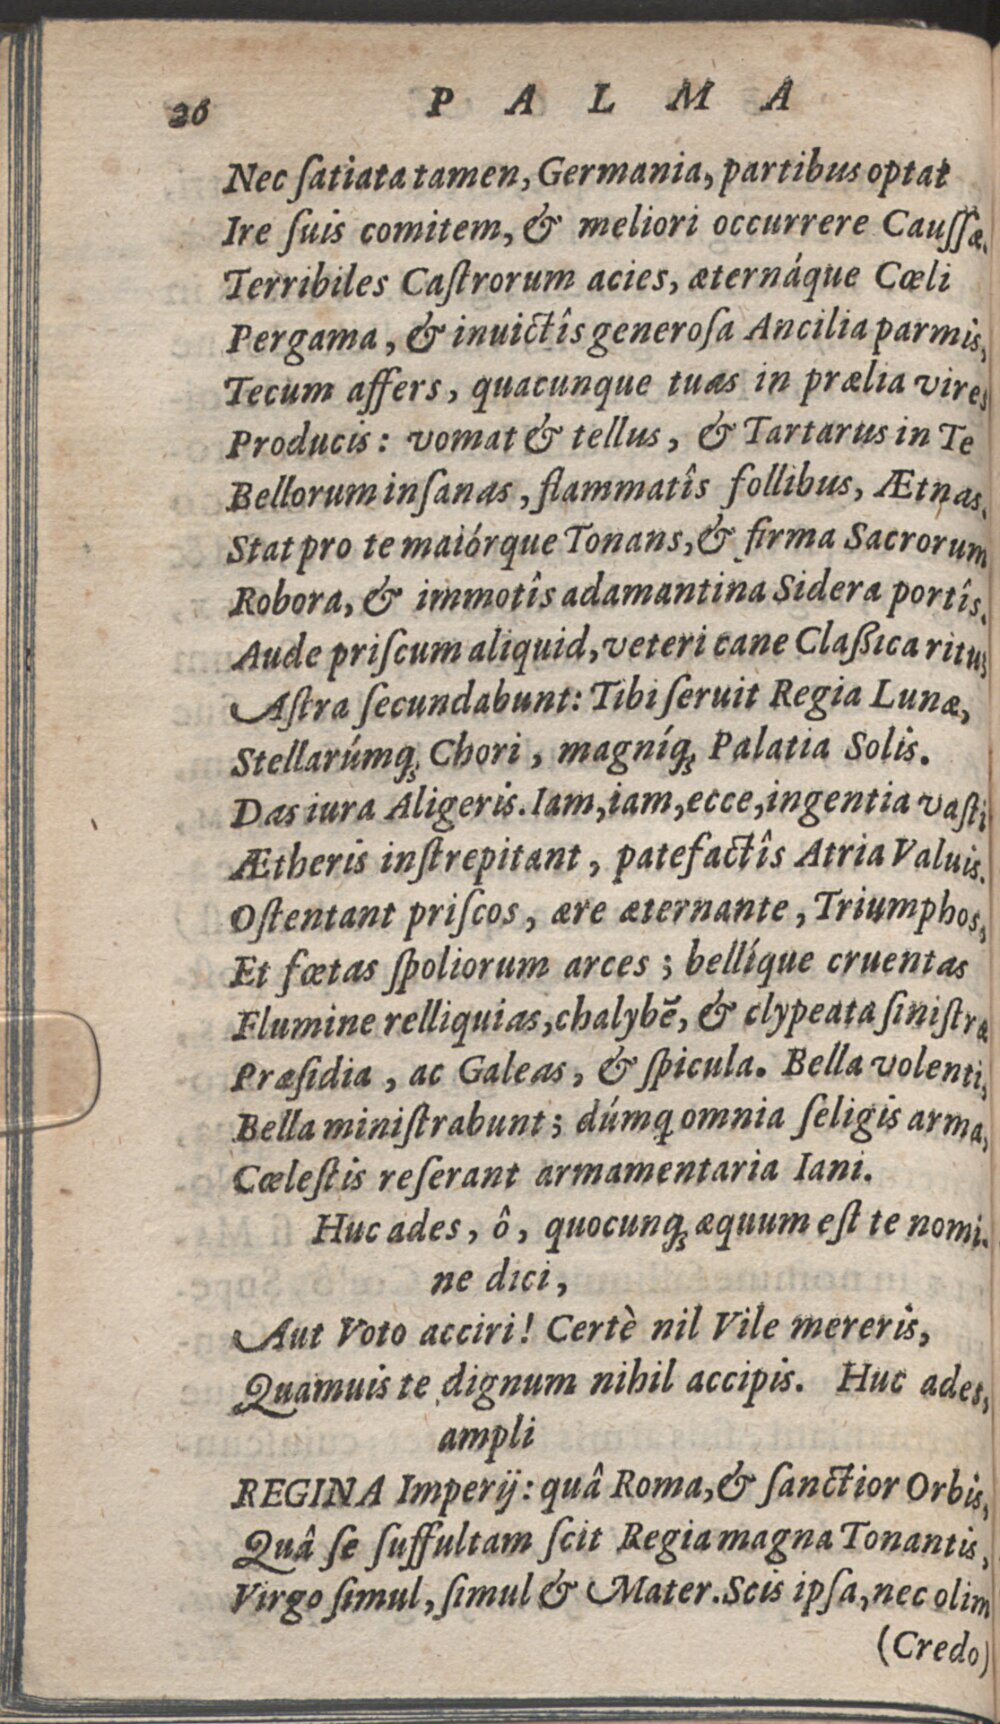 26 P A L M A
Nec ſatiata tamen, Germania, partibus optat
Ire ſuis comitem, & meliori occurrere Cauſſæ.
Terribiles Caſtrorum acies, æternáque Cœli
Pergama, & inuictîs generoſa Ancilia parmis,
Tecum affers, quacunque tuas in prælia vires
Producis: vomat & tellus, & Tartarus in Te
Bellorum inſanas, flammatîs follibus, Ætnas.
Stat pro te maiórque Tonans, & firma Sacrorum
Robora, & immotîs adamantina Sidera portîs.
Aude priſcum aliquid, veteri cane Claßica ritu;
Aſtra ſecundabunt: Tibi ſeruit Regia Lunæ,
Stellarúmq; Chori, magníq; Palatia Solis.
Das iura Aligeris. Iam, iam, ecce, ingentia vaſti
Ætheris inſtrepitant, patefactîs Atria Valuis.
Oſtentant priſcos, ære æternante, Triumphos,
Et fœtas ſpoliorum arces; bellíque cruentas
Flumine relliquias, chalybẽ, & clypeata ſiniſtræ
Præſidia, ac Galeas, & ſpicula. Bella volenti,
Bella miniſtrabunt; dúmq omnia ſeligis arma,
Cæleſtis reſerant armamentaria Iani.
Huc ades, ô, quocunq; æquum eſt te nomi-
ne dici,
Aut Voto acciri! Certè nil Vile mereris,
Quamuis te dignum nihil accipis. Huc ades,
ampli
REGINA Imperij: quâ Roma, & ſanctior Orbis,
Quâ ſe ſuffultam ſcit Regia magna Tonantis,
Virgo ſimul, ſimul & Mater. Scis ipſa, nec olim
(Credo)